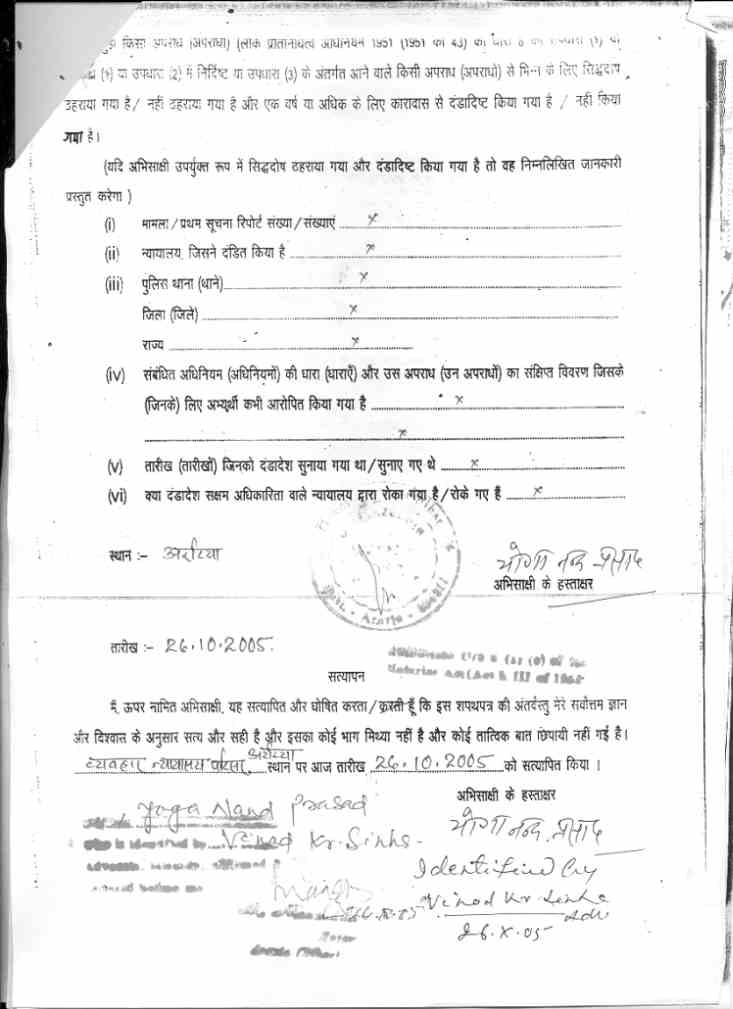 किसी अपराध (अपराधों) (लोक प्रतिनिधित्व अधिनियम 1951 (1951 का 43) की धारा 8 की उपधारा (1) या
(1) या उपधारा (2) में निर्दिष्ट या उपधारा (3) के अंतर्गत आने वाले किसी अपराध (अपराधों) से भिन्न के लिए सिद्धदोष
ठहराया गया है / नहीं ठहराया गया है और एक वर्ष या अधिक के लिए कारावास से दंडादिष्ट किया गया है / नहीं किया
गया है।
(यदि अभिसाक्षी उपर्युक्त रूप में सिद्धदोष ठहराया गया और दंडादिष्ट किया गया है तो वह निम्नलिखित जानकारी
प्रस्तुत करेगा )
(i) मामला / प्रथम सूचना रिपोर्ट संख्या / संख्याएं x
(ii) न्यायालय, जिसने दंडित किया है x
(iii) पुलिस थाना (थाने) x
जिला (जिले) x
राज्य x
(iv) संबंधित अधिनियम (अधिनियमों) की धारा (धाराएँ) और उस अपराध (उन अपराधों) का संक्षिप्त विवरण जिसके
(जिनके) लिए अभ्यर्थी कभी आरोपित किया गया है x
x
(v) तारीख (तारीखों) जिनको दंडादेश सुनाया गया था / सुनाए गए थे x
(vi) क्या दंडादेश सक्षम अधिकारिता वाले न्यायालय द्वारा रोका गया है / रोके गए हैं x
स्थान :- अररिया
योगा नन्द प्रसाद
अभिसाक्षी के हस्ताक्षर
तारीख :- 26.10.2005.
सत्यापन
मैं, ऊपर नामित अभिसाक्षी, यह सत्यापित और घोषित करता / करती हूँ कि इस शपथपत्र की अंतर्वस्तु मेरे सर्वोत्तम ज्ञान
और विश्वास के अनुसार सत्य और सही है और इसका कोई भाग मिथ्या नहीं है और कोई तात्विक बात छिपायी नहीं गई है।
व्यवहार न्यायालय अररिया स्थान पर आज तारीख 26.10.2005 को सत्यापित किया ।
अभिसाक्षी के हस्ताक्षर
योगा नन्द प्रसाद
Yoga Nand Prasad
who is identified by Vinod Kr. Sinha
Identified by
Vinod Kr Sinha
Adv
26.X.05